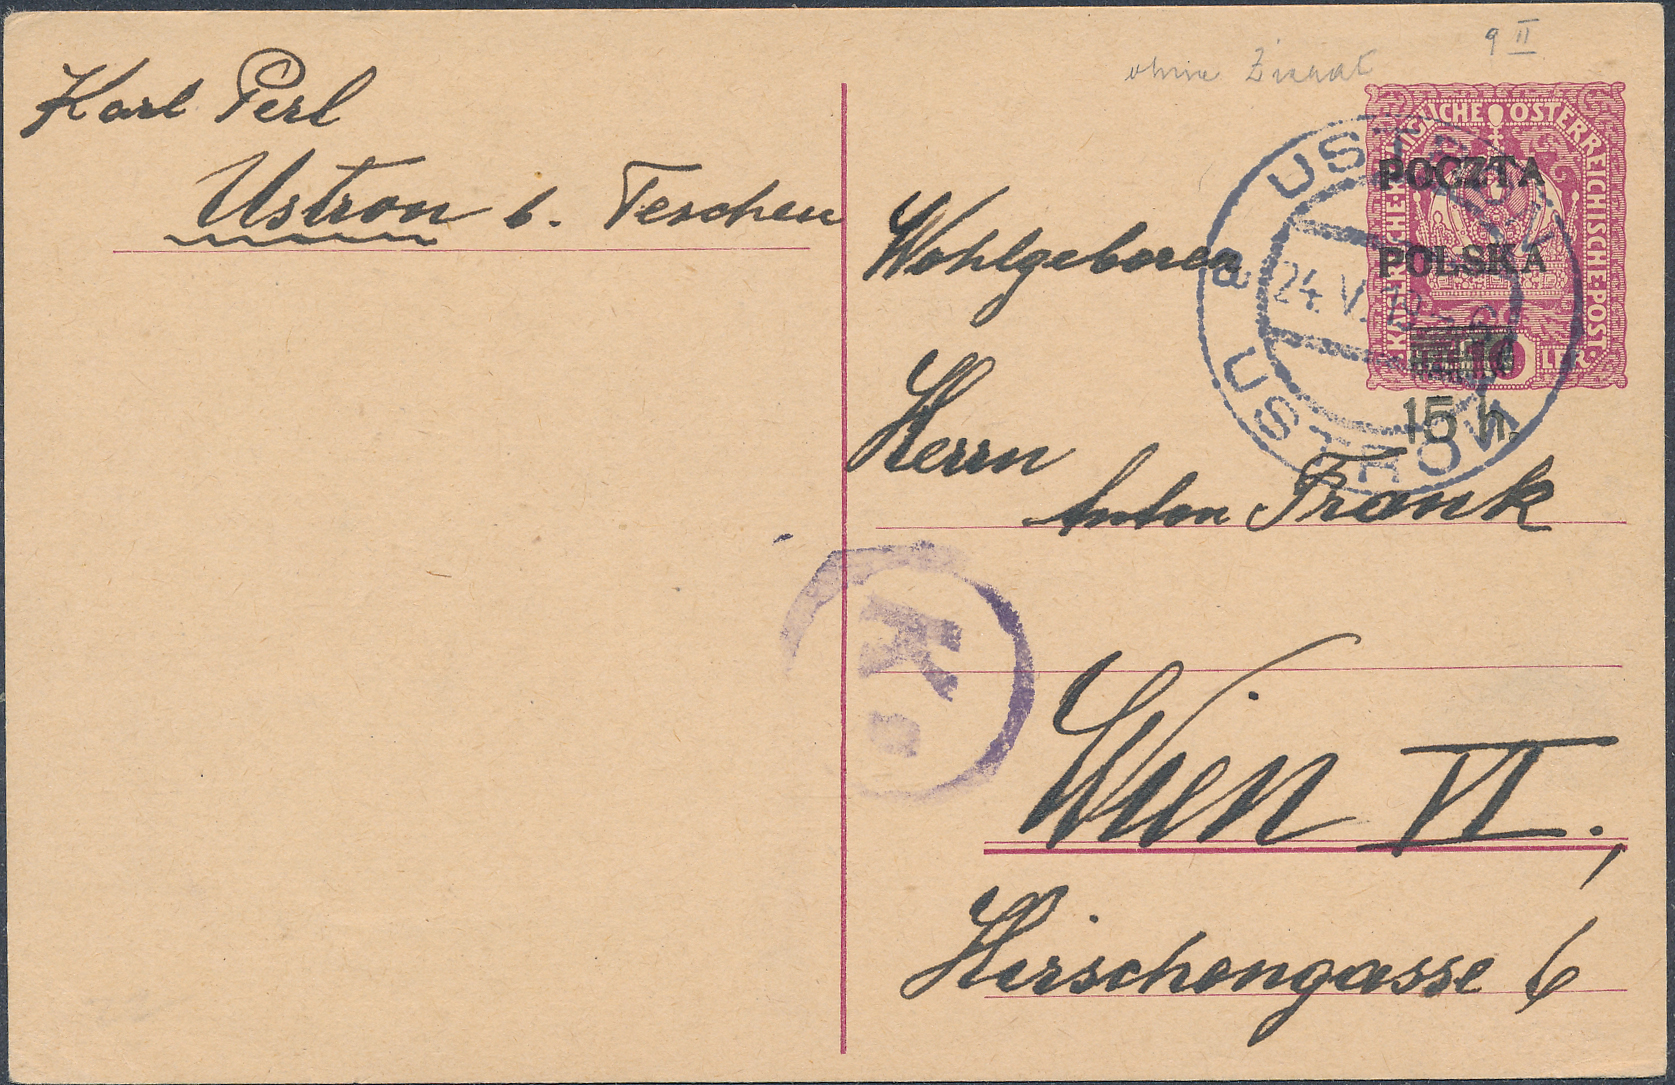 9 II
ohne
Karl Perl
Ustron b. Teschen
KAISERLICHE KÖNIGLICHE ÖSTERREICHISCHE POST
POCZTA
POLSKA
10
LER
15 h.
USTROŃ
a 24. V.
USTROŃ
Wohlgeboren
Herrn
Anton Frank
K
Wien VI,
Hirschengasse 6